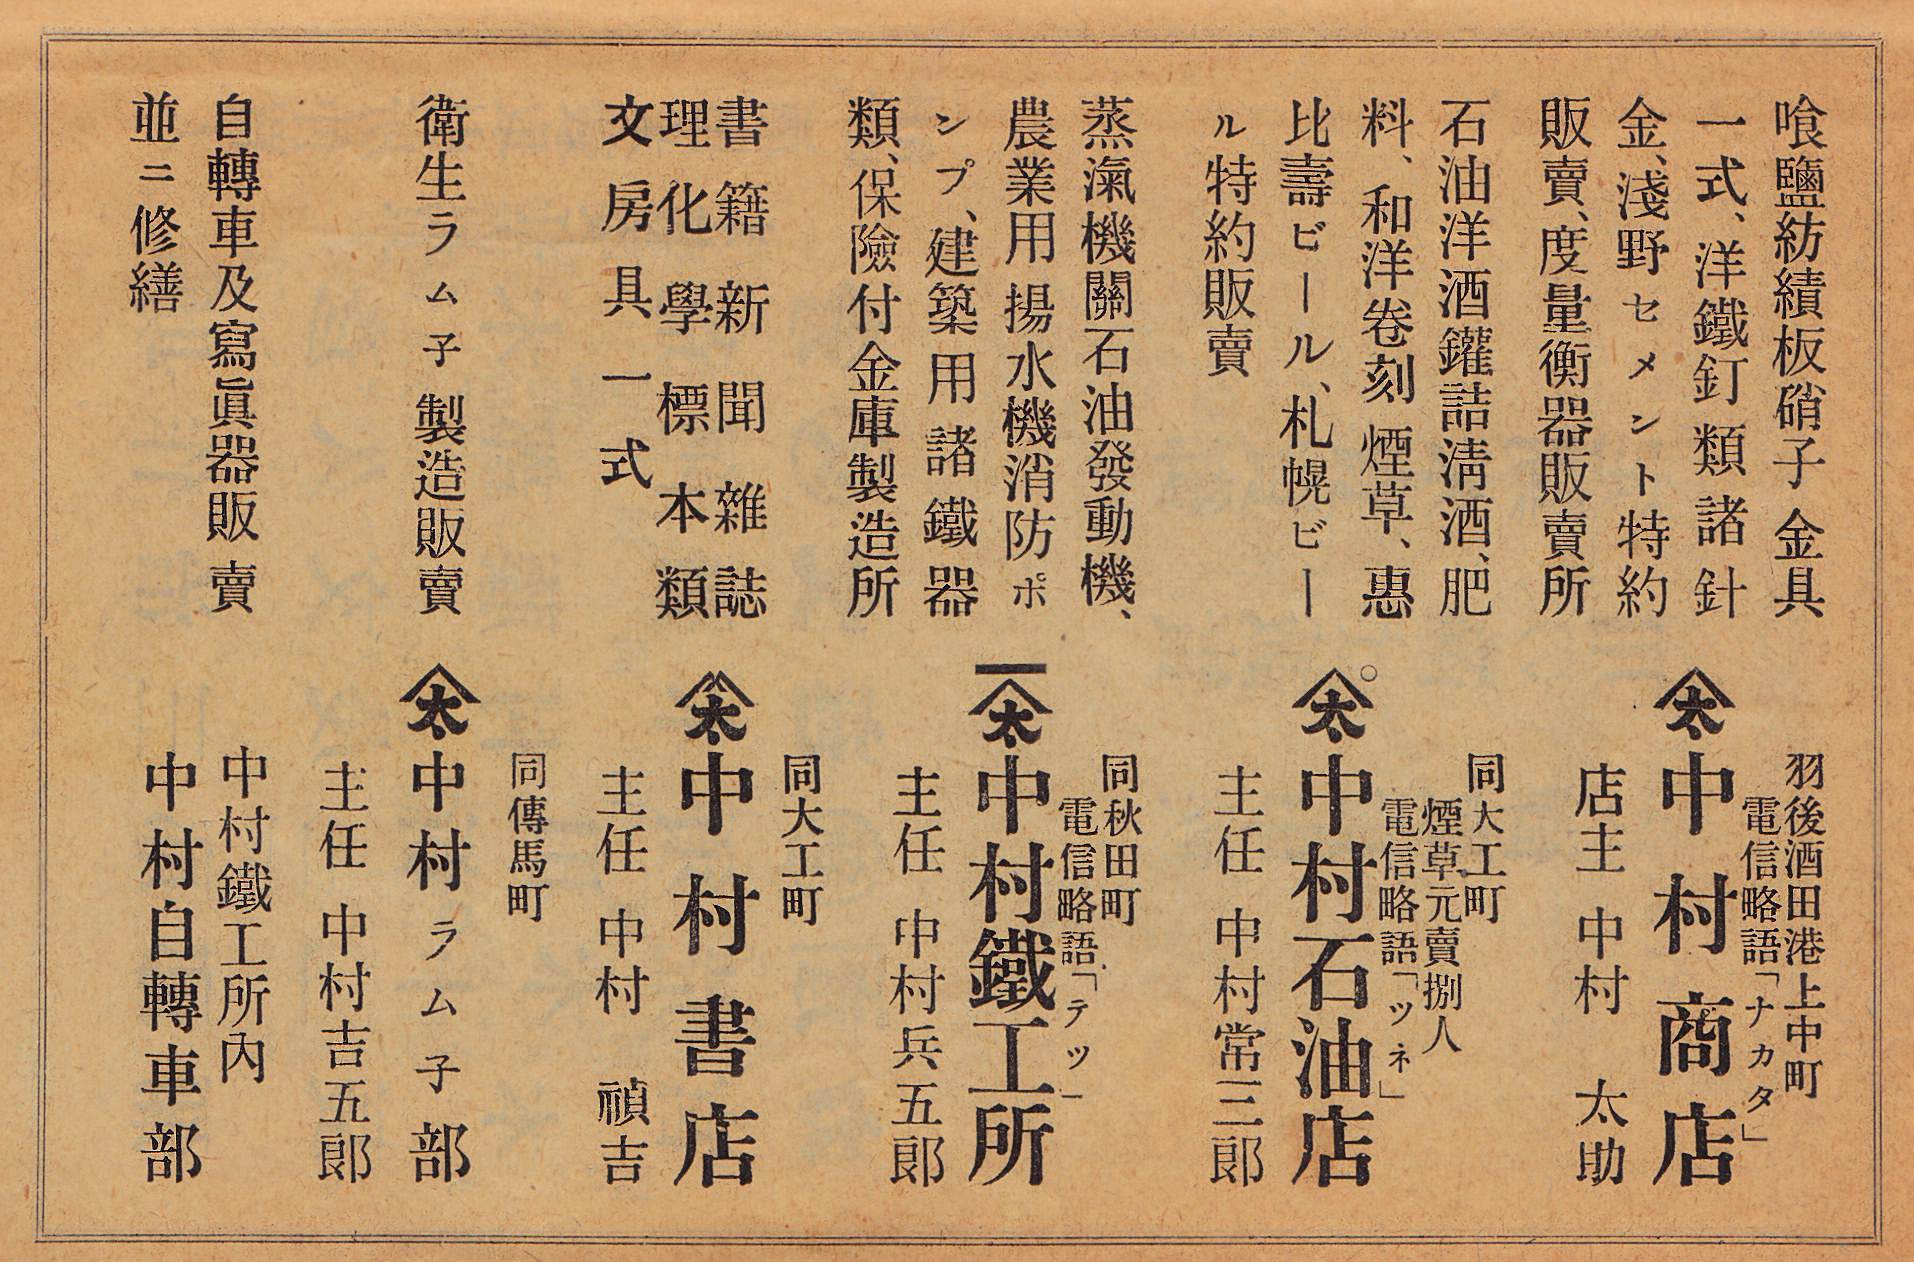 喰鹽紡績板硝子金具
一式、洋鐵釘類諸針
金、淺野セメント特約
販賣、度量衡器販賣所
羽後酒田港上中町
電信略語「ナカタ」
中村商店
店主 中村 太助
石油洋酒鑵詰淸酒、肥
料、和洋卷刻煙草、惠
比壽ビール、札幌ビー
ル特約販賣
同大工町
煙草元賣捌人
電信略語「ツネ」
中村石油店
主任 中村常三郞
蒸氣機關石油發動機、
農業用揚水機消防ポ
ンプ、建築用諸鐵器
類、保險付金庫製造所
同秋田町
電信略語「テツ」
中村鐵工所
主任 中村兵五郞
書籍新聞雜誌
理化學標本類
文房具一式
同大工町
中村書店
主任 中村 禎吉
衛生ラム子製造販賣
同傳馬町
中村ラム子部
主任 中村吉五郞
自轉車及寫眞器販賣
並ニ修繕
中村鐵工所內
中村自轉車部